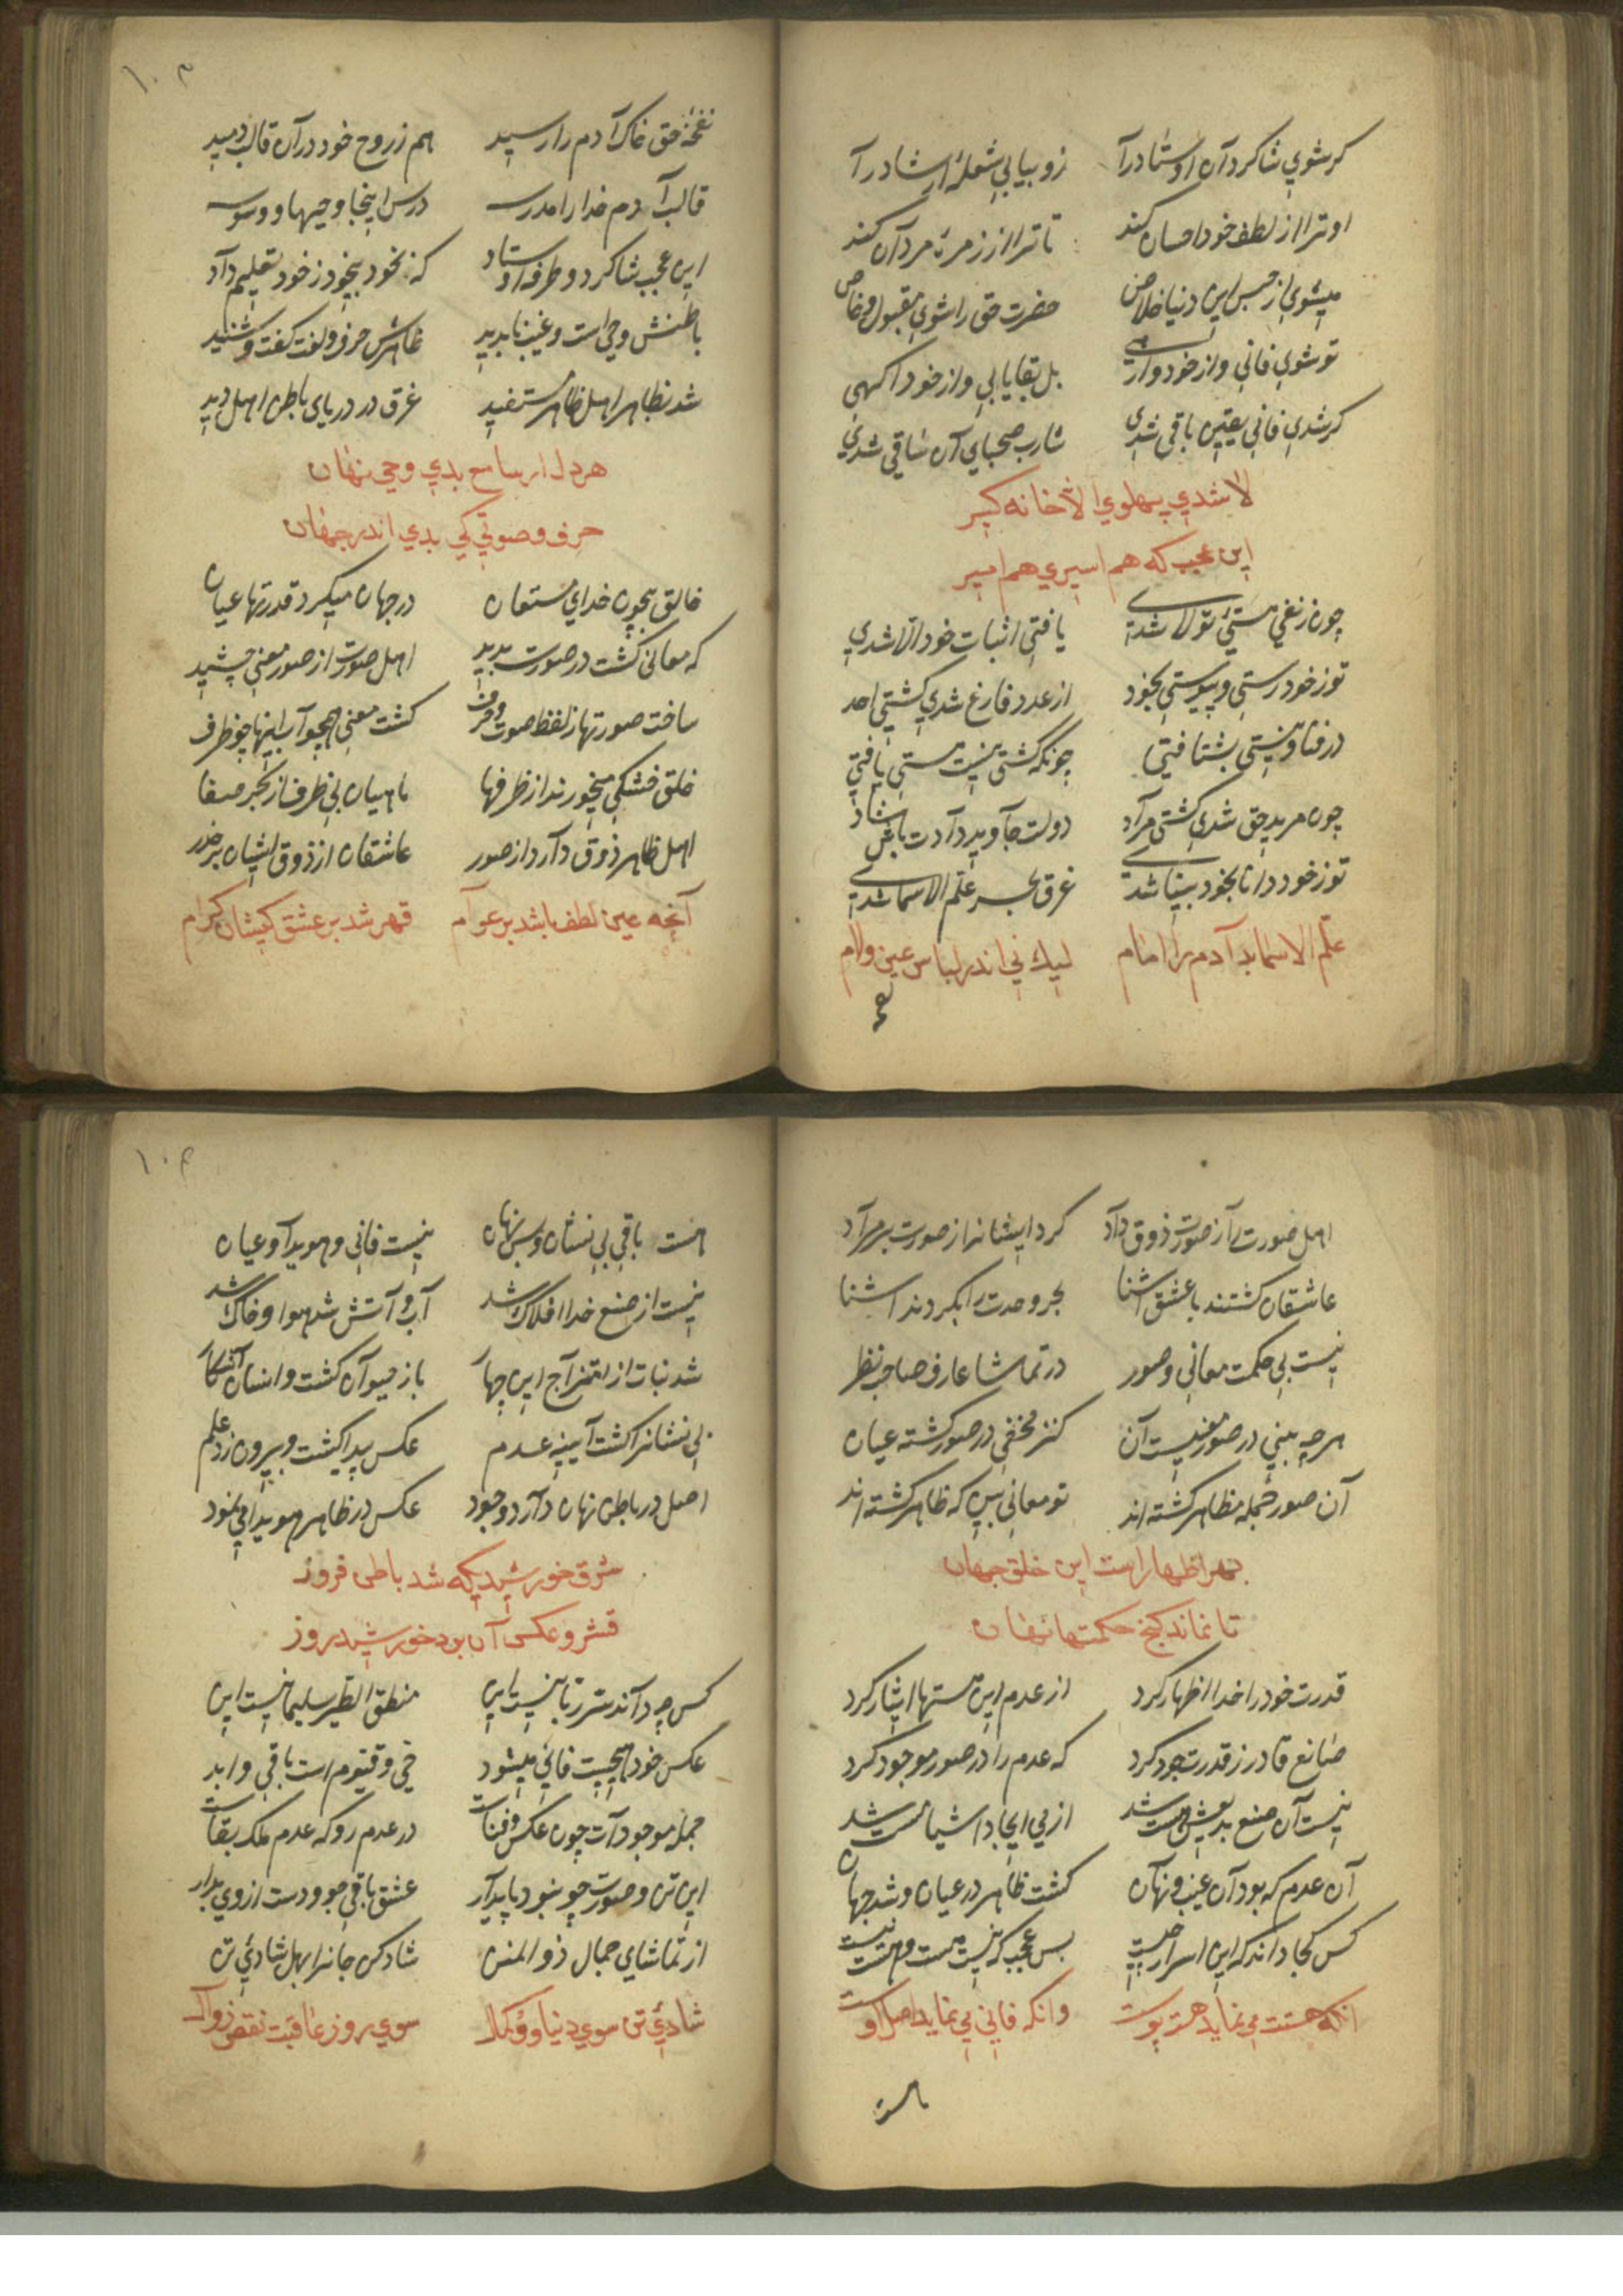 کر شوی شاکرد آن اوستاد را زو بیابی شعلهٔ ارشاد را
او ترا از لطف خود احسان کند تا ترا از زمرهٔ مردان کند
میشوی از حبس این دنیا خلاص حضرت حق را شوی مقبول و خاص
تو شوی فانی و از خود وارهی بل بقا یابی و از خود آکهی
کر شدی فانی یقین باقی شدی شارب صحبای آن ساقی شدی
لا شدی پهلوی الا خانه کیر
این عجب که هم اسیری هم امیر
چون ز نفی هستئ تو لا شدی یافتی اثبات خود الا شدی
تو ز خود رستی و پیوستی بخود از عدد فارغ شدی کشتی احد
در فنا و نیستی بشتافتی چونکه کشتی نیست هستی یافتی
چون مرید حق شدی کشتی مراد دولت جاوید دادت باش شاد
تو ز خود دانا بخود بینا شدی غرق بحر علم الاسما شدی
علم الاسما بد آدم را امام لیک نی اندر لباس عین و لام
نفخهٔ حق خاک آدم را رسید هم ز روح خود در آن قالب دمید
قالب آدم خدا را مدرسه درس اینجا وحیها و وسوسه
این عجب شاکرد و طرفه اوستاد که بخود بیخود ز خود تعلیم داد
باطنش وحی است و غیب ناپدید ظاهرش حرف و لغت کفت و شنید
شد بظاهر اهل ظاهر مستفید غرق در دریای باطن اهل دید
هر دل ار سامع بدی وحی نهان
حرف و صوتی کی بدی اندر جهان
خالق بیچون خدای مستعان در جهان میکرد قدرتها عیان
که معانی کشت در صورت پدید اهل صورت از صور معنی چشید
ساخت صورتها ز لفظ صوت و حرف کشت معنی همچو آب اینها چو ظرف
خلق خشکی میخورند از ظرفها ماهیان بی ظرف از بحر صفا
اهل ظاهر ذوق دارد از صور عاشقان از ذوق ایشان بر حذر
آنچه عین لطف باشد بر عوام قهر شد بر عشق کیشان کرام
اهل صورت را ز صورت ذوق داد کرد ایشانرا ز صورت بر مراد
عاشقان کشتند با عشق آشنا بحر وحدت را بکردند آشنا
نیست بی حکمت معانی و صور در تماشا عارف صاحب نظر
هر چه بینی در صور معنیست آن کنز مخفی در صور کشته عیان
آن صور جمله مظاهر کشته اند تو معانی بین که ظاهر کشته اند
بهر اظهار است این خلق جهان
تا نماند کنج حکمتها نهان
قدرت خود را خدا اظهار کرد از عدم این هستها ایثار کرد
صانع قادر ز قدرت جود کرد که عدم را در صور موجود کرد
نیست آن صنع بدیعش هست شد از پی ایجاد اشیا هست شد
آن عدم که بود آن غیب و نهان کشت ظاهر در عیان و شد جهان
کس کجا داند که این اسرار چیست بس عجب که نیست هست و هست نیست
آنکه هستت می نماید هست پوست وانکه فانی می نماید اصل اوست
هست باقی بی نشان و بس نهان نیست فانی و هویدا و عیان
نیست از صنع خدا افلاک شد آب و آتش شد هوا و خاک شد
شد نبات از امتزاج این چهار باز حیوان کشت و انسان آشکار
بی نشانرا کشت آیینه عدم عکس پیدا کشت و بیرون زد علم
اصل در باطن نهان دارد وجود عکس در ظاهر هویدا می نمود
شرق خورشیدیکه شد باطن فروز
قشر و عکس آن بود خورشید روز
کس چه داند سر ربانیست این منطق الطیر سلیمانیست این
عکس خود هیچیست فانی میشود حی و قیوم است باقی و ابد
جمله موجودات چون عکس و فناست در عدم رو که عدم ملک بقاست
این تن و صورت چو نبود پایدار عشق باقی جو و دست از وی بدار
از تماشای جمال ذو المنن شاد کن جانرا بهل شادئ تن
شادئ تن سوی دنیا و کمال سوی روز عاقبت نقص زوال